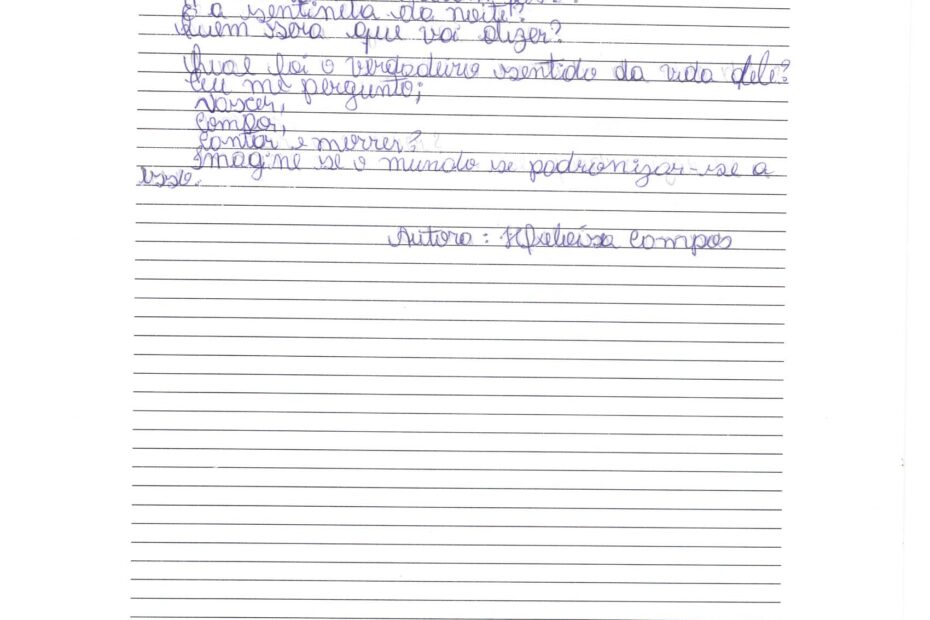 É a sentinela da noite!?
Quem sera que vai dizer?
Qual foi o verdadeiro sentido da vida dele?
Eu me pergunto;
Nascer,
Compor,
Cantar e morrer?
Imagine se o mundo se padronizar-se a
isso.
Autora: Campos